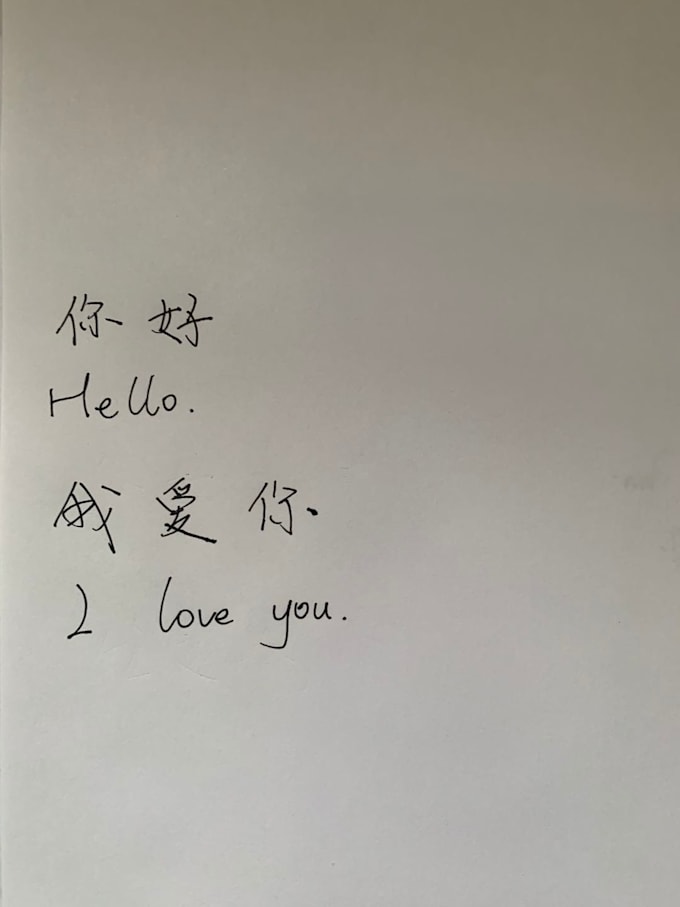 你好
Hello.
我爱你.
I love you.